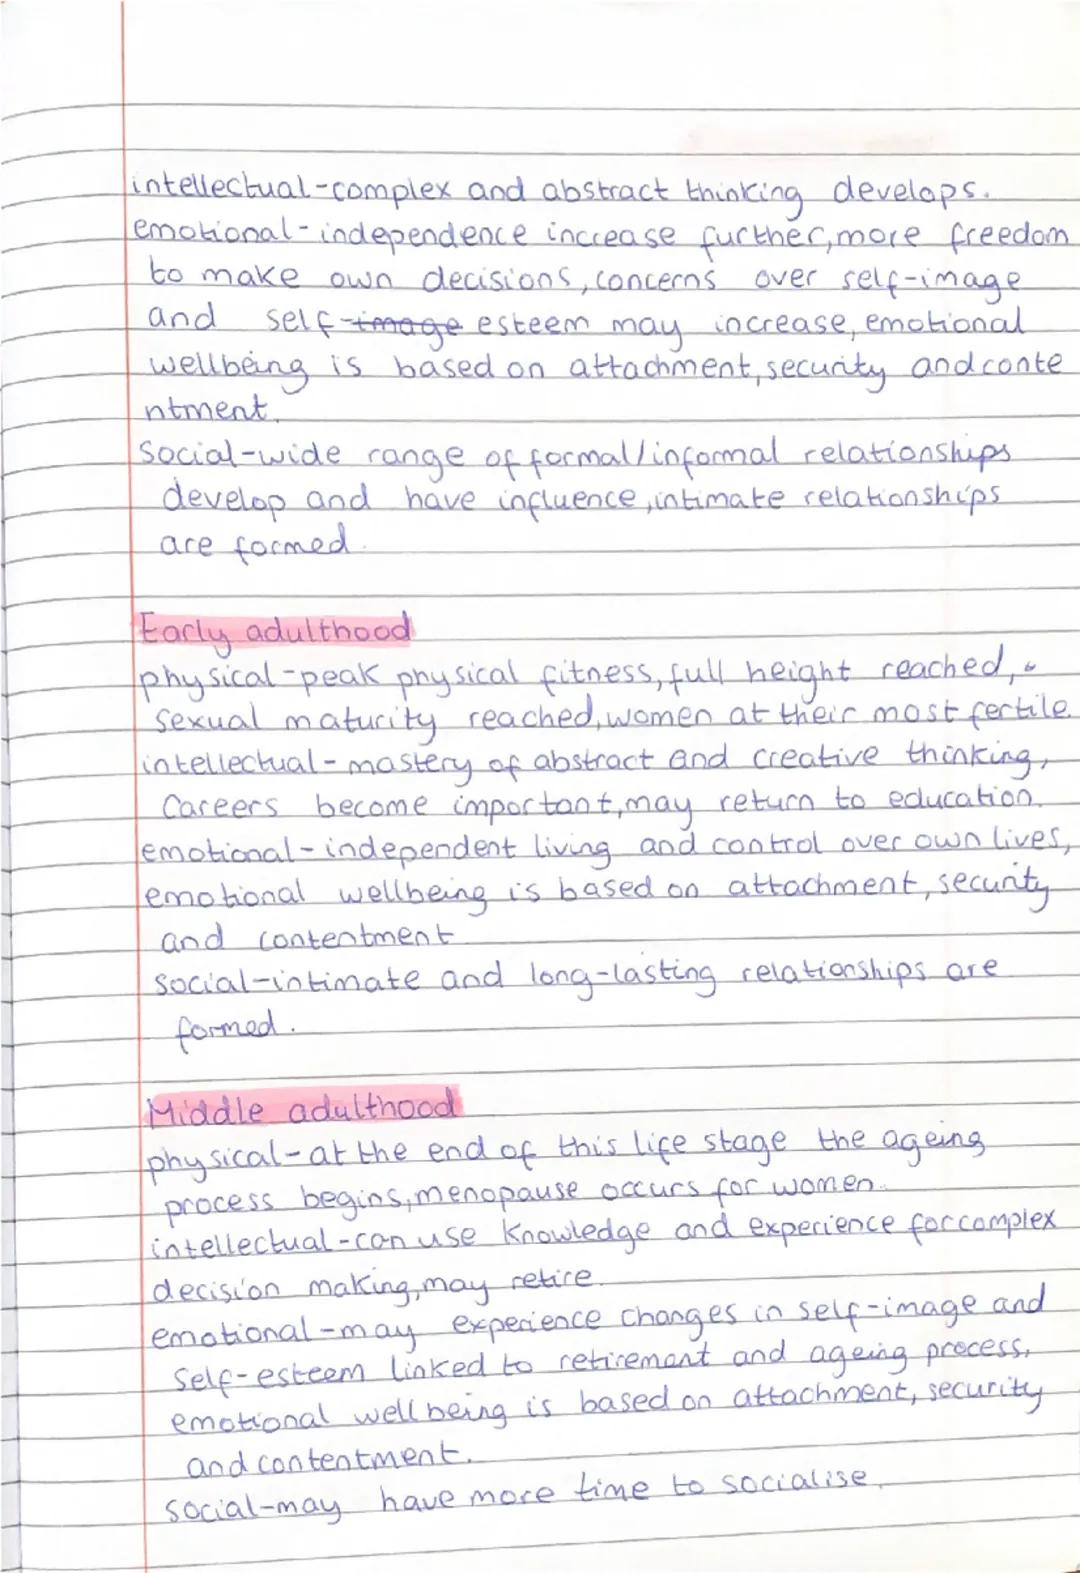 intellectual-complex and abstract thinking develops.
emotional-independence increase further, more freedom
to make own decisions, concerns over self-image
and self-image esteem may increase, emotional
wellbeing is based on attachment, security and conte
ntment.
social-wide range of formal/informal relationships
develop and have influence, intimate relationships
are formed.
Early adulthood
physical-peak physical fitness, full height reached,
sexual maturity reached, women at their most fertile.
intellectual-mastery of abstract and creative thinking,
careers become important, may return to education.
emotional-independent living and control over own lives,
emotional wellbeing is based on attachment, security
and contentment
social-intimate and long-lasting relationships are
formed.
Middle adulthood
physical-at the end of this life stage the ageing
process begins, menopause occurs for women.
intellectual-can use knowledge and experience for complex
decision making, may retire.
emotional-may experience changes in self-image and
self-esteem linked to retirement and ageing process,
emotional wellbeing is based on attachment, security
and contentment.
social-may have more time to socialise.